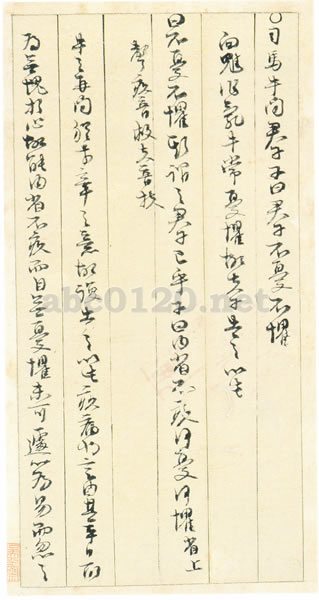 〇司馬牛問君子子曰君子不憂不懼
向魋作亂牛常憂懼故夫子告之以此
曰不憂不懼斯謂之君子已乎子曰內省不疚何憂何懼省上
聲疚音救夫音扶
牛之再問猶前章之意故復告之以此疚病也言由其平日所
為無愧於心故能內省不疚而自無憂懼未可遽以為易而忽之
abc0120.net